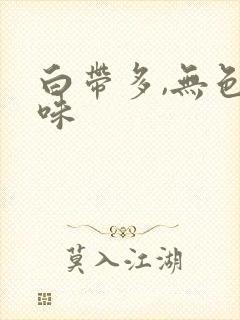 白帶多,無色
味
莫入江湖